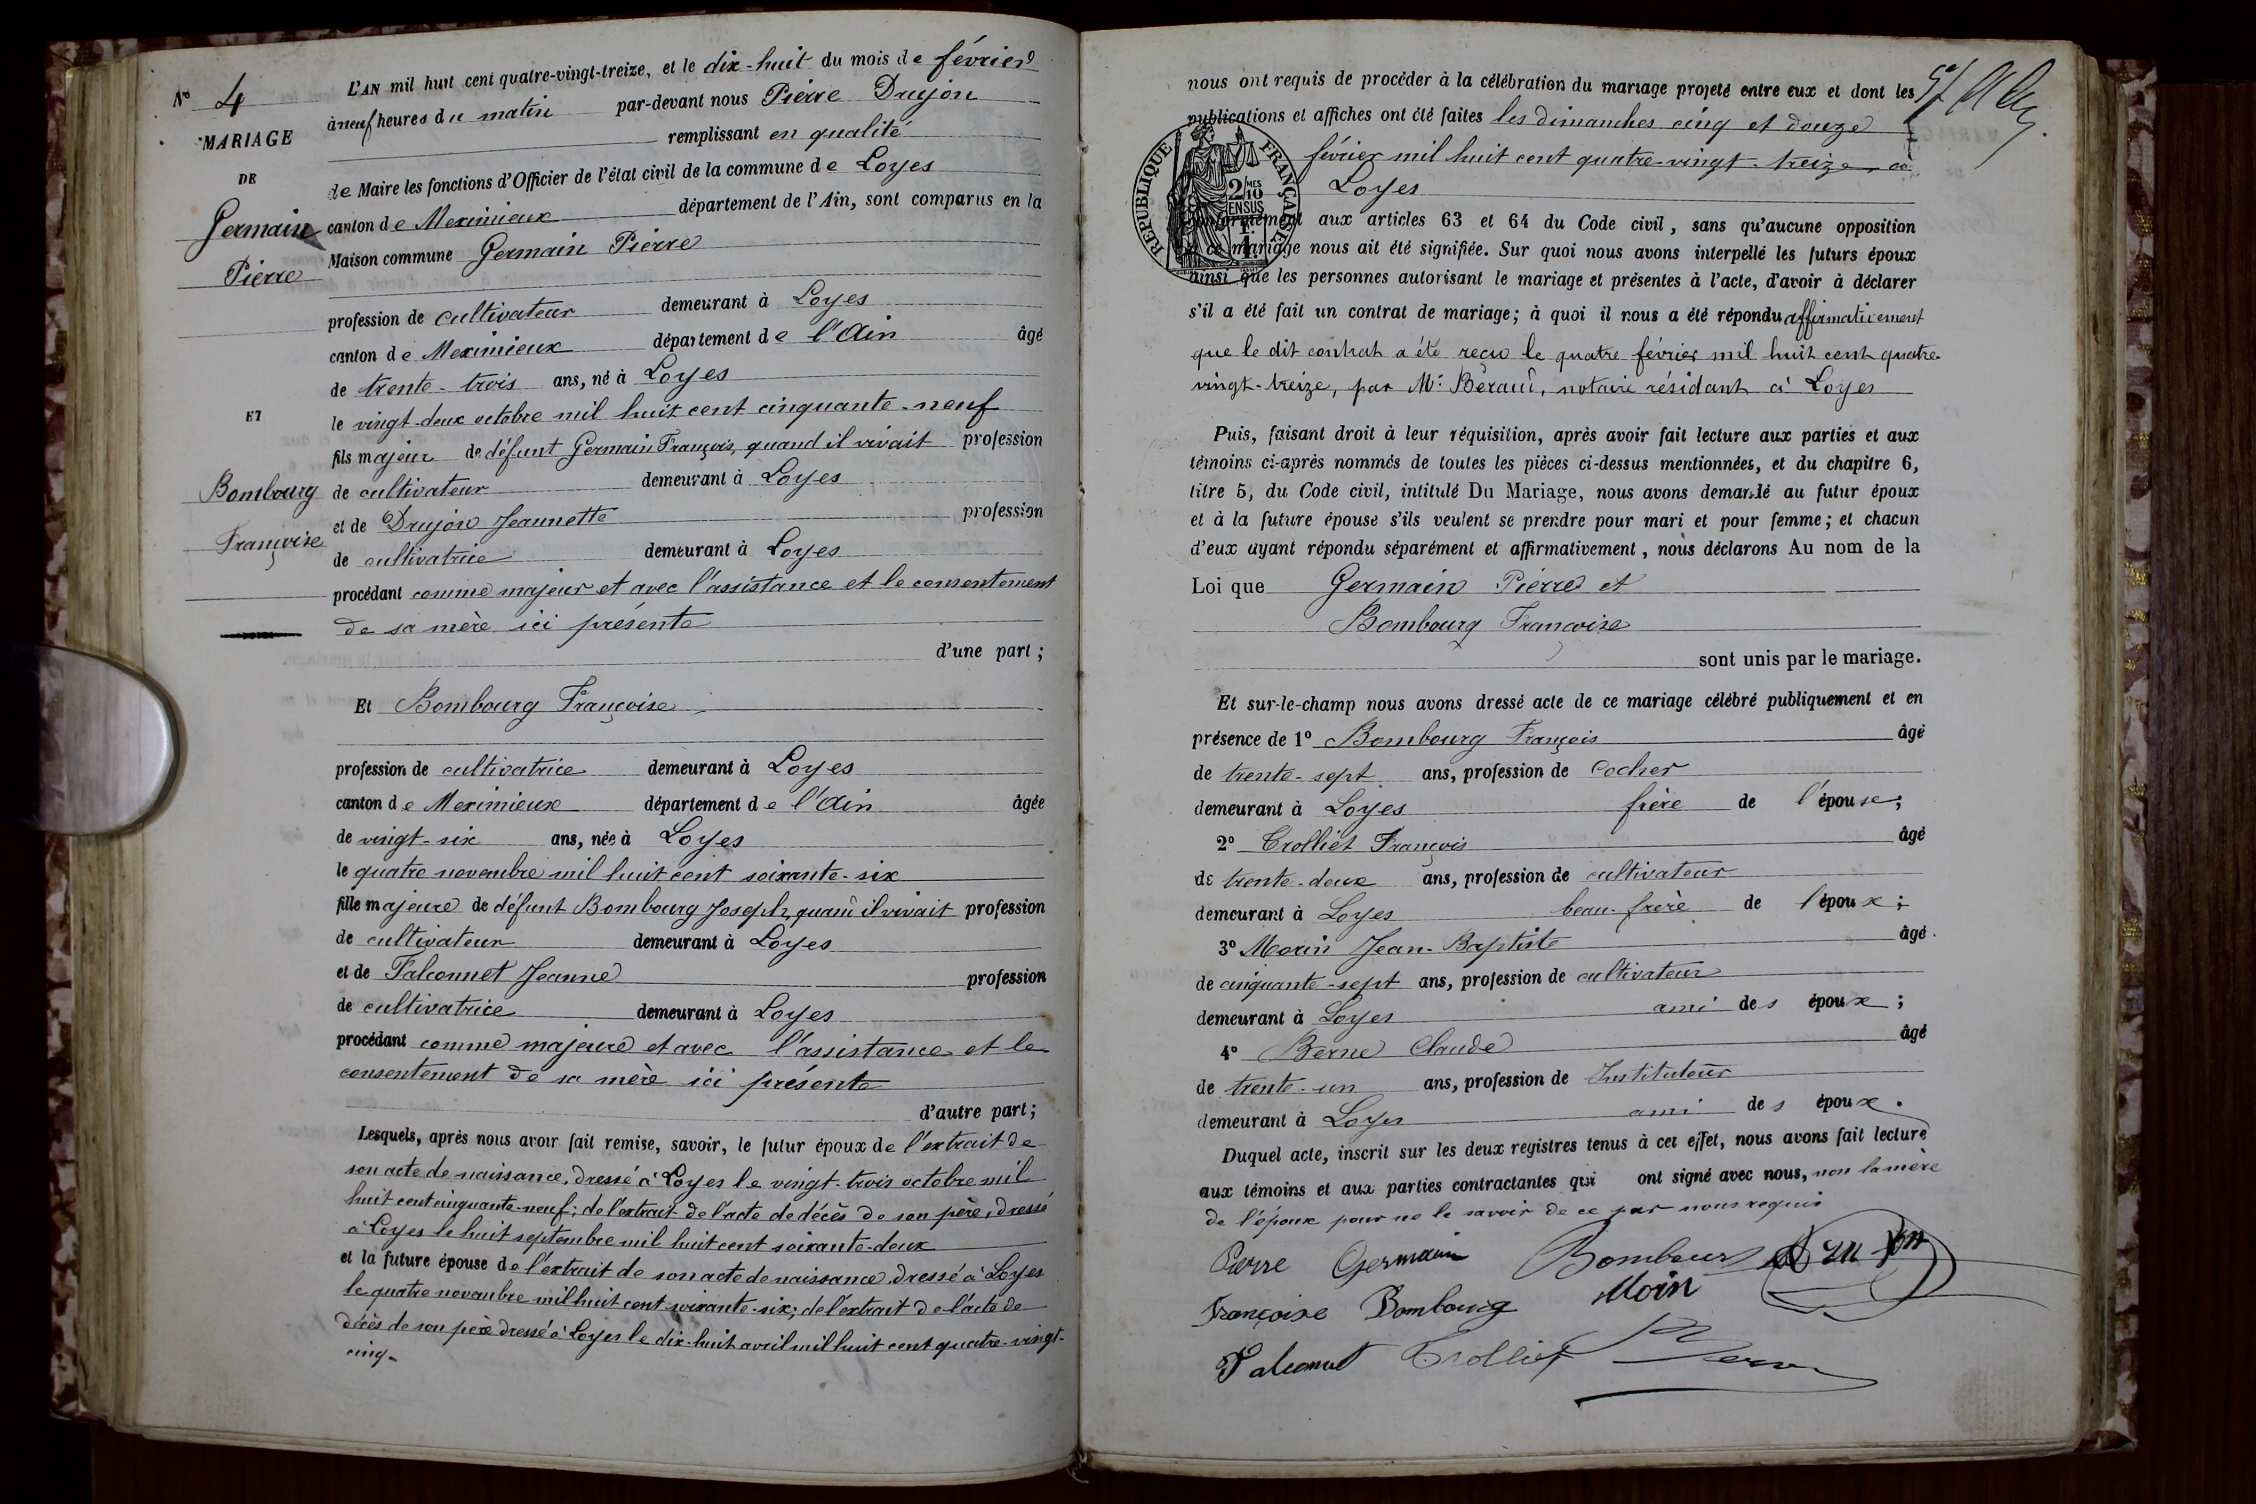 N° 4
MARIAGE
DE
Germain
Pierre
ET
Bombourg
Françoise
L'AN mil huit cent quatre-vingt-treize, et le dix-huit du mois de février
à neuf heures du matin par-devant nous Pierre Drujon
remplissant en qualité
de Maire les fonctions d'Officier de l'état civil de la commune de Loyes
canton de Meximieux département de l'Ain, sont comparus en la
Maison commune Germain Pierre
profession de cultivateur demeurant à Loyes
canton de Meximieux département de l'Ain âgé
de trente-trois ans, né à Loyes
le vingt-deux octobre mil huit cent cinquante-neuf
fils majeur de défunt Germain François, quand il vivait profession
de cultivateur demeurant à Loyes
et de Drujon Jeannette profession
de cultivatrice demeurant à Loyes
procédant comme majeur et avec l'assistance et le consentement
de sa mère ici présente
d'une part ;
Et Bombourg Françoise
profession de cultivatrice demeurant à Loyes
canton de Meximieux département de l'Ain âgée
de vingt-six ans, née à Loyes
le quatre novembre mil huit cent soixante-six
fille majeure de défunt Bombourg Joseph, quand il vivait profession
de cultivateur demeurant à Loyes
et de Falconnet Jeanne profession
de cultivatrice demeurant à Loyes
procédant comme majeure et avec l'assistance et le
consentement de sa mère ici présente
d'autre part ;
Lesquels, après nous avoir fait remise, savoir, le futur époux de l'extrait de
son acte de naissance, dressé à Loyes le vingt-trois octobre mil
huit cent cinquante-neuf ; de l'extrait de l'acte de décès de son père, dressé
à Loyes le huit septembre mil huit cent soixante-deux
et la future épouse de l'extrait de son acte de naissance, dressé à Loyes
le quatre novembre mil huit cent soixante-six ; de l'extrait de l'acte de
décès de son père dressé à Loyes le dix-huit avril mil huit cent quatre-vingt-
cinq.
nous ont requis de procéder à la célébration du mariage projeté entre eux et dont les
publications et affiches ont été faites les dimanches cinq et douze
février mil huit cent quatre-vingt-treize, à
Loyes
REPUBLIQUE FRANÇAISE
2 MES 10
EN SUS
conformément aux articles 63 et 64 du Code civil, sans qu'aucune opposition
à ce mariage nous ait été signifiée. Sur quoi nous avons interpellé les futurs époux
ainsi que les personnes autorisant le mariage et présentes à l'acte, d'avoir à déclarer
s'il a été fait un contrat de mariage ; à quoi il nous a été répondu affirmativement
que le dit contrat a été reçu le quatre février mil huit cent quatre-
vingt-treize, par Me Béraud, notaire résidant à Loyes
Puis, faisant droit à leur réquisition, après avoir fait lecture aux parties et aux
témoins ci-après nommés de toutes les pièces ci-dessus mentionnées, et du chapitre 6,
titre 5, du Code civil, intitulé Du Mariage, nous avons demandé au futur époux
et à la future épouse s'ils veulent se prendre pour mari et pour femme ; et chacun
d'eux ayant répondu séparément et affirmativement, nous déclarons Au nom de la
Loi que Germain Pierre et
Bombourg Françoise
sont unis par le mariage.
Et sur-le-champ nous avons dressé acte de ce mariage célébré publiquement et en
présence de 1° Bombourg François âgé
de trente-sept ans, profession de cocher
demeurant à Loyes frère de l'épouse ;
2° Trolliet François âgé
de trente-deux ans, profession de cultivateur
demeurant à Loyes beau-frère de l'époux ;
3° Morin Jean-Baptiste âgé
de cinquante-sept ans, profession de cultivateur
demeurant à Loyes ami des époux ;
4° Berne Claude âgé
de trente-un ans, profession de Instituteur
demeurant à Loyes ami des époux.
Duquel acte, inscrit sur les deux registres tenus à cet effet, nous avons fait lecture
aux témoins et aux parties contractantes qui ont signé avec nous, non la mère
de l'époux pour ne le savoir de ce par nous requis
Pierre Germain Bombourg Drujon
Françoise Bombourg Moin
Falconnet Trolliet Berne